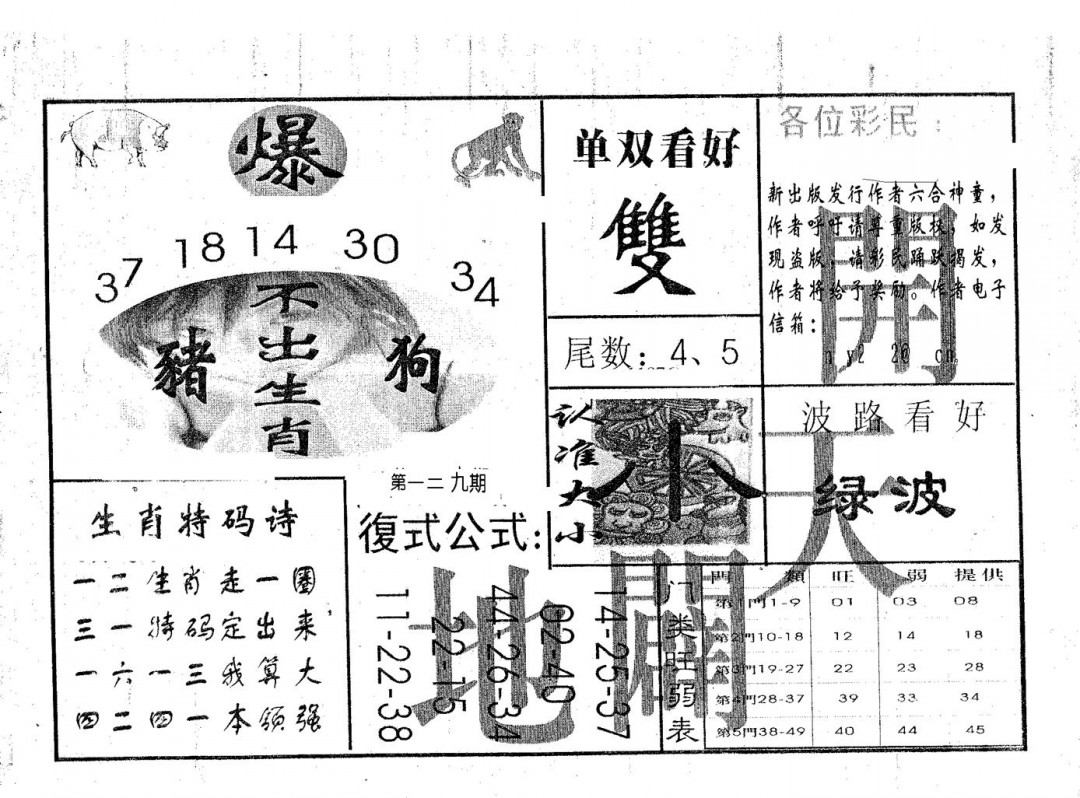 爆
37 18 14 30 34
不出生肖
豬
狗
第一二九期
单双看好
雙
尾数：4、5
各位彩民：
新出版发行作者六合神童，
作者呼吁请尊重版权，如发
现盗版，请彩民踊跃揭发，
作者将给予奖励。作者电子
信箱：
開
认准大小
小
波路看好
绿波
天
生肖特码诗
一二生肖走一圈
三一特码定出来，
一六一三我算大
四二四一本领强
復式公式：
11-22-38
22-15
44-26-34
02-40
14-25-37
地
開
八类旺弱表
門類 旺 弱 提供
第1門1-9 01 03 08
第2門10-18 12 14 18
第3門19-27 22 23 28
第4門28-37 39 33 34
第5門38-49 40 44 45